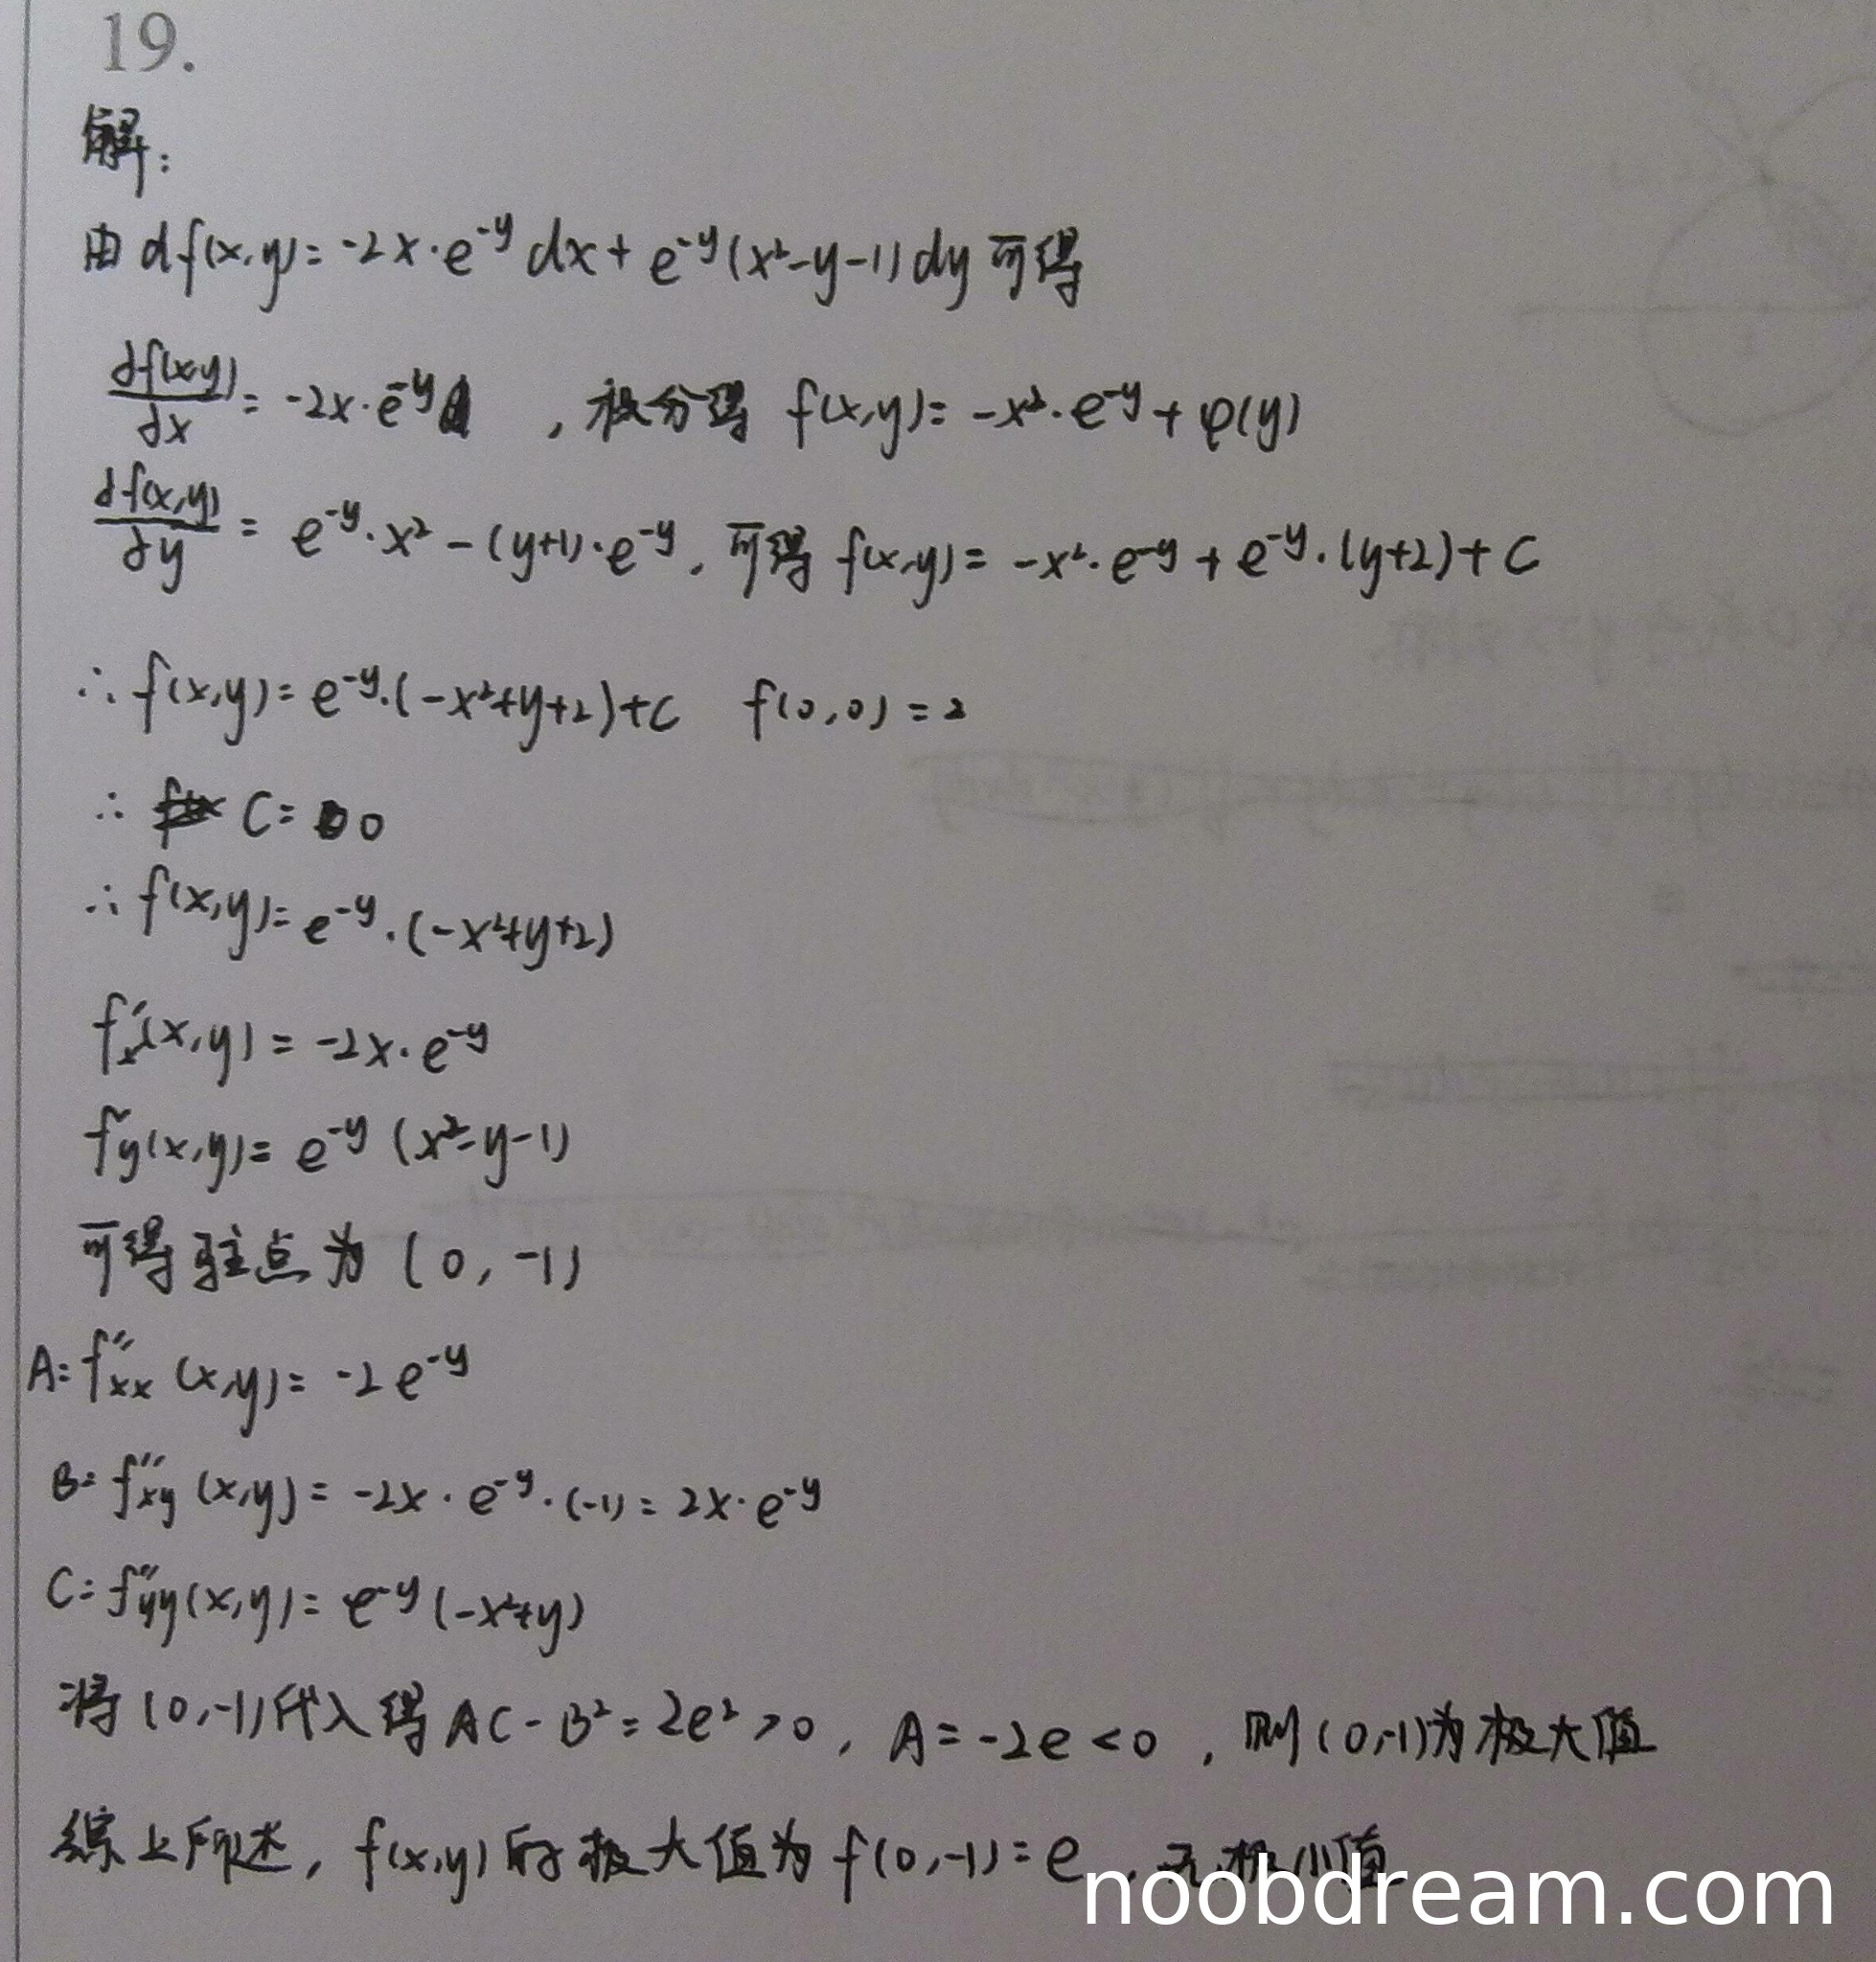 19.
解:
由 df(x,y)= -2x·e^{-y} dx + e^{-y}(x²-y-1)dy 可得
∂f(x,y)/∂x = -2x·e^{-y} , 积分得 f(x,y)= -x²·e^{-y} + φ(y)
∂f(x,y)/∂y = e^{-y}·x² - (y+1)·e^{-y}, 可得 f(x,y)= -x²·e^{-y} + e^{-y}·(y+2)+C
∴ f(x,y)= e^{-y}·(-x²+y+2)+C f(0,0)=2
∴ C= 0
∴ f(x,y)= e^{-y}·(-x²+y+2)
f'x(x,y) = -2x·e^{-y}
f'y(x,y)= e^{-y} (x²-y-1)
可得驻点为 (0, -1)
A= f''xx (x,y)= -2e^{-y}
B= f''xy (x,y)= -2x·e^{-y}·(-1)= 2x·e^{-y}
C= f''yy(x,y)= e^{-y}(-x²+y)
将(0,-1)代入得 AC-B²=2e²>0, A=-2e<0, 则(0,-1)为极大值
综上所述, f(x,y)的极大值为 f(0,-1)=e, 无极小值
noobdream.com